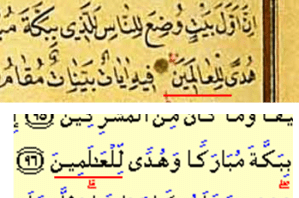 ان اول بيت وضع للناس للذي ببكة مبا
هدى للعالمين فيه ايات بينات مقام
يفا وما كان من المشركين ٩٥
ببكة مباركا وهدى للعلمين ٩٦